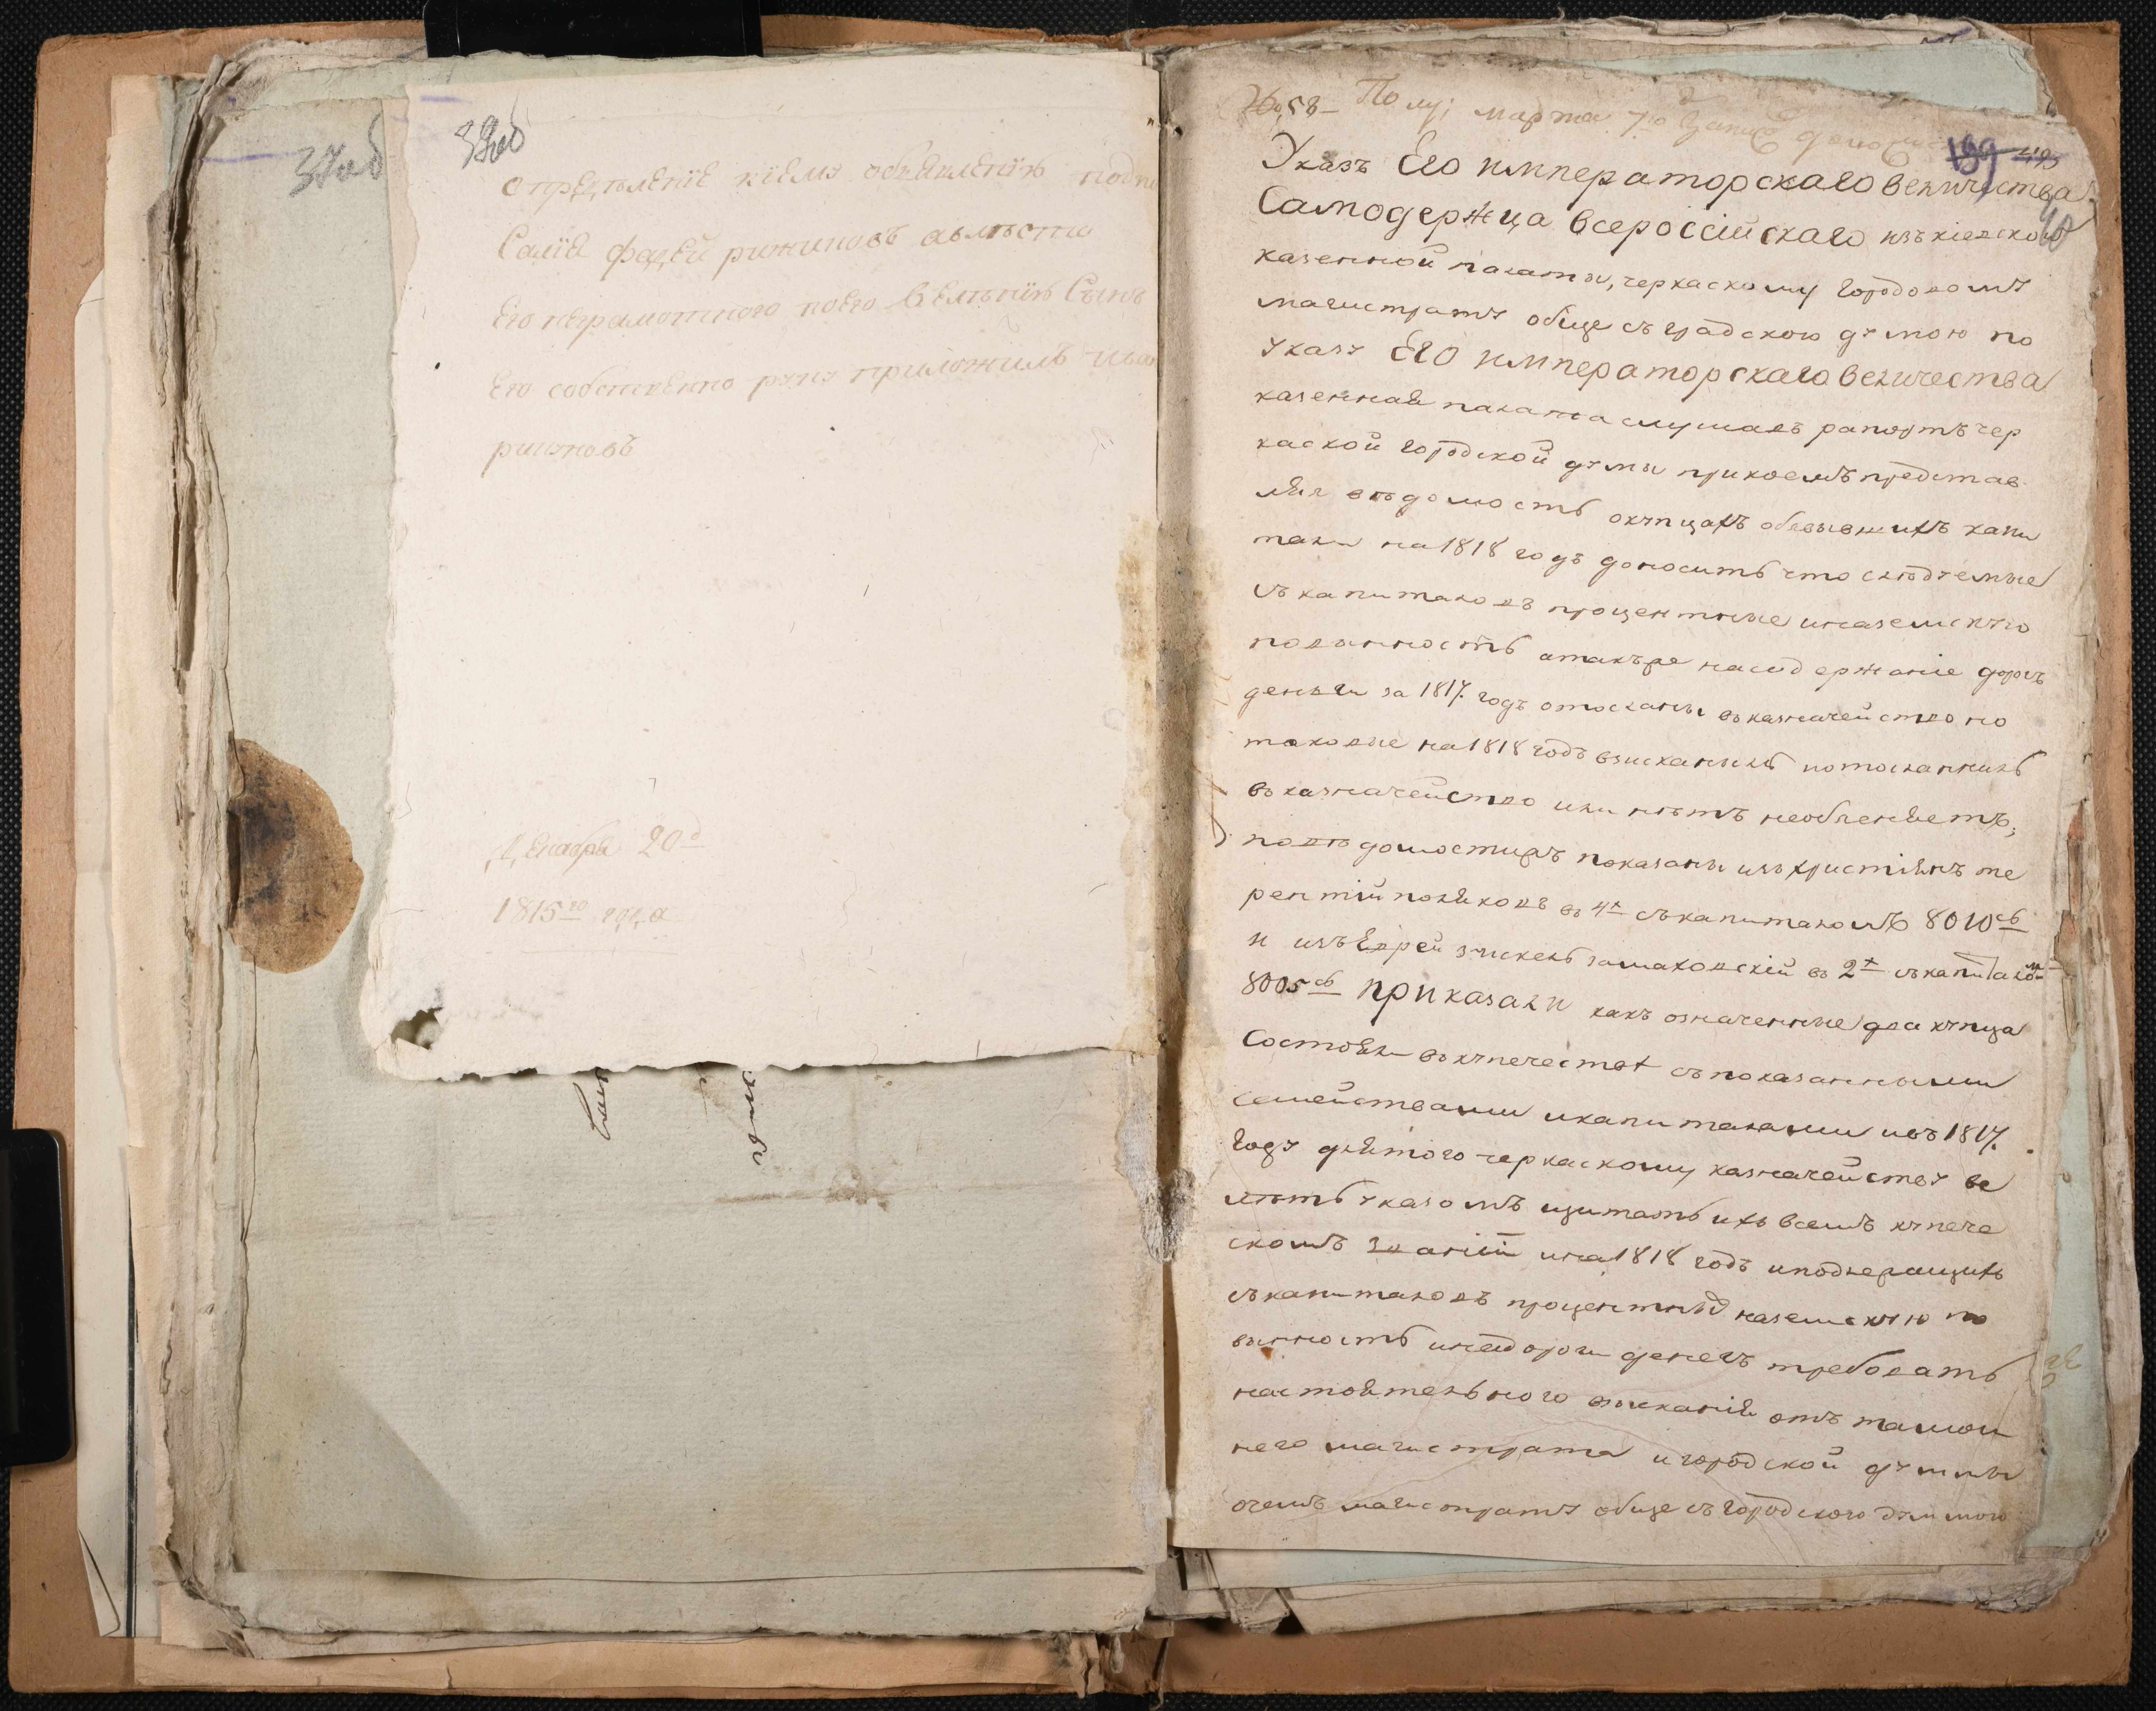 37об
38об
определеніе
к сему объявленію
Салів фадей рижиковъ а вместо
его неграмотного по его веленію Сынъ
его собственно руку приложилъ
рижковъ
Декабря 20 д
1815го года
Полу: марта 7го
189
40
Указъ Его императорскаго величества
Самодержца всероссійскаго изъ кіевской
казенной палаты, черкаскому городовому
магистрату обще съ градскою думою по
указу Его императорскаго величества
казенная палата слушавъ рапортъ чер
каской городской думы при коемъ представ
ляя ведомость о купцахъ обявившихъ капи
талы на 1818 годъ доноситъ что следуемые
съ капиталовъ процентные и на земскую
повинность а также на содержаніе дорогъ
деньги за 1817. годъ отосланы въ казначейство но
таковые на 1818 годъ взысканыль и отосланныль
въ казначейство или нетъ необясняетъ;
по ведомостиже показаны изъ христіянъ те
рентій поляковъ въ 4х съ капиталомъ 8010 сб
и изъ Еврей зускель заславскій въ 2х съ капиталом
8005 сб приказали какъ означенные два купца
Состоял въ купечестве съ показанными
семействами и капиталами и въ 1817.
году для того черкаскому казначейству ве
леть указомъ щитать ихъ всемъ купече
скомъ званіи и на 1818 годъ и подлежащихъ
съ капиталовъ процентныхъ на земскую по
винность и на дороги денегъ требовать
настоятельного взысканія отъ тамош
него магистрата и городской думы
о чемъ магистрату обще съ городскою думою